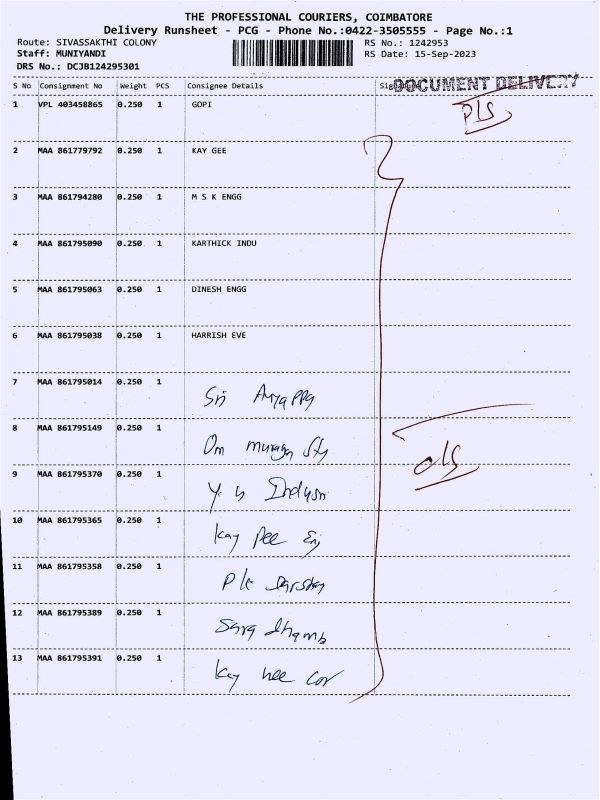 THE PROFESSIONAL COURIERS, COIMBATORE
Delivery Runsheet - PCG - Phone No.:0422-3505555 - Page No.:1
Route: SIVASSAKTHI COLONY RS No.: 1242953
Staff: MUNIYANDI RS Date: 15-Sep-2023
DRS No.: DCJB124295301
DOCUMENT DELIVERY
S No Consignment No Weight PCS Consignee Details
1 VPL 403458865 0.250 1 GOPI
2 MAA 861779792 0.250 1 KAY GEE
3 MAA 861794280 0.250 1 M S K ENGG
4 MAA 861795090 0.250 1 KARTHICK INDU
5 MAA 861795063 0.250 1 DINESH ENGG
6 MAA 861795038 0.250 1 HARRISH EVE
7 MAA 861795014 0.250 1 Sri
8 MAA 861795149 0.250 1 Om
9 MAA 861795370 0.250 1
10 MAA 861795365 0.250 1 Kay Pee
11 MAA 861795358 0.250 1
12 MAA 861795389 0.250 1
13 MAA 861795391 0.250 1 Kay